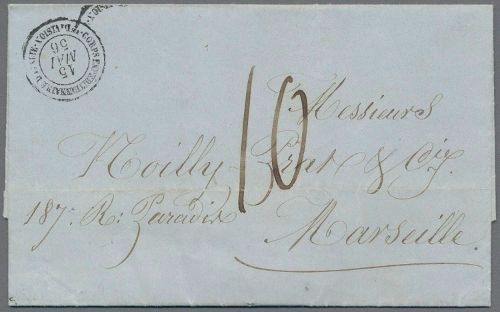 15
MAI
56
10
Messieurs
Noilly Prat & Cie.
187. R: Paradis
Marseille